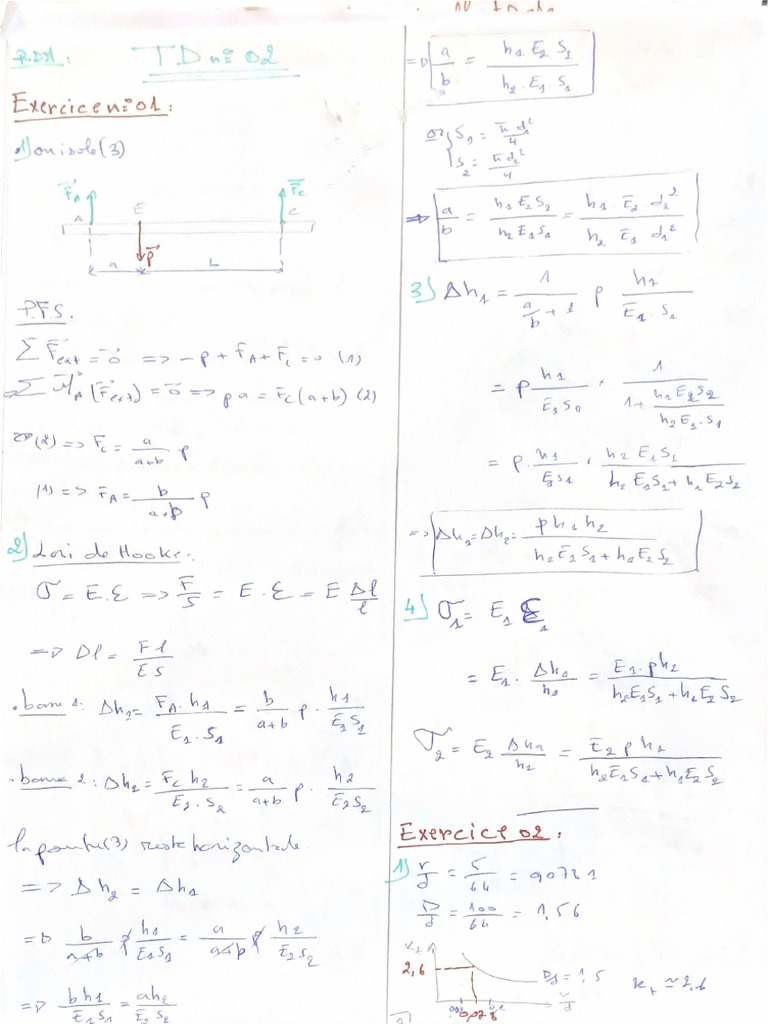 RDM :
TD n=° 02
Exercice n=° 01 :
1) on isole (3)
F_A
F_C
A
E
C
P
a
b
P.F.S.
∑ F_ext = 0 => -p + F_A + F_C = 0 (1)
=> ∑ M_A (F_ext) = 0 => p a = F_C (a+b) (2)
(2) => F_C = a/(a+b) p
(1) => F_A = b/(a+b) p
2) Loi de Hooke :
σ = E.ε => F/S = E.ε = E Δl/l
=> Δl = Fl/ES
. barre 1 : Δh_1 = F_A.h_1/E_1.S_1 = b/(a+b) p . h_1/E_1S_1
. barre 2 : Δh_2 = F_C h_2/E_2.S_2 = a/(a+b) p . h_2/E_2S_2
la poutre (3) reste horizontale
=> Δh_2 = Δh_1
=> b/(a+b) p h_1/E_1S_1 = a/(a+b) p h_2/E_2S_2
=> bh_1/E_1S_1 = ah_2/E_2S_2
=> a/b = h_1 E_2 S_2/h_2.E_1.S_1
or S_1 = πd_1²/4
S_2 = πd_2²/4
=> a/b = h_1 E_2 S_2/h_2 E_1 S_1 = h_1.E_2 d_2²/h_2 E_1 d_1²
3) Δh_1 = 1/(a/b + 1) p h_1/E_1.S_1
= p h_1/E_1S_0 . 1/(1 + h_1E_2S_2/h_2E_1.S_1)
= p. h_1/E_1S_1 . h_2 E_1S_1/(h_2 E_1S_1 + h_1E_2S_2)
=> Δh_1 = Δh_2 = p h_1 h_2/(h_2E_1S_1 + h_1E_2S_2)
4) σ_1 = E_1 ε_1
= E_1 . Δh_1/h_1 = E_1.ph_2/(h_2E_1S_1 + h_1E_2S_2)
σ_2 = E_2 Δh_2/h_2 = E_2 p h_1/(h_2E_1S_1 + h_1E_2S_2)
Exercice 02 :
1) r/d = 5/64 = 0,0781
D/d = 100/64 = 1,56
K_t
2,6
D/d = 1,5
K_t ≃ 2,6
0,078
r/d